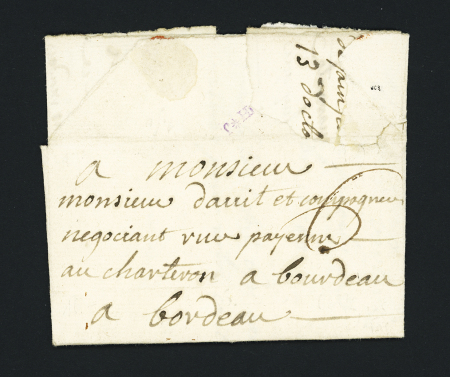 13
a monsieur
monsieur darrit et compagnie
negociant rue payenne
au charteron a bourdeau
a bordeau